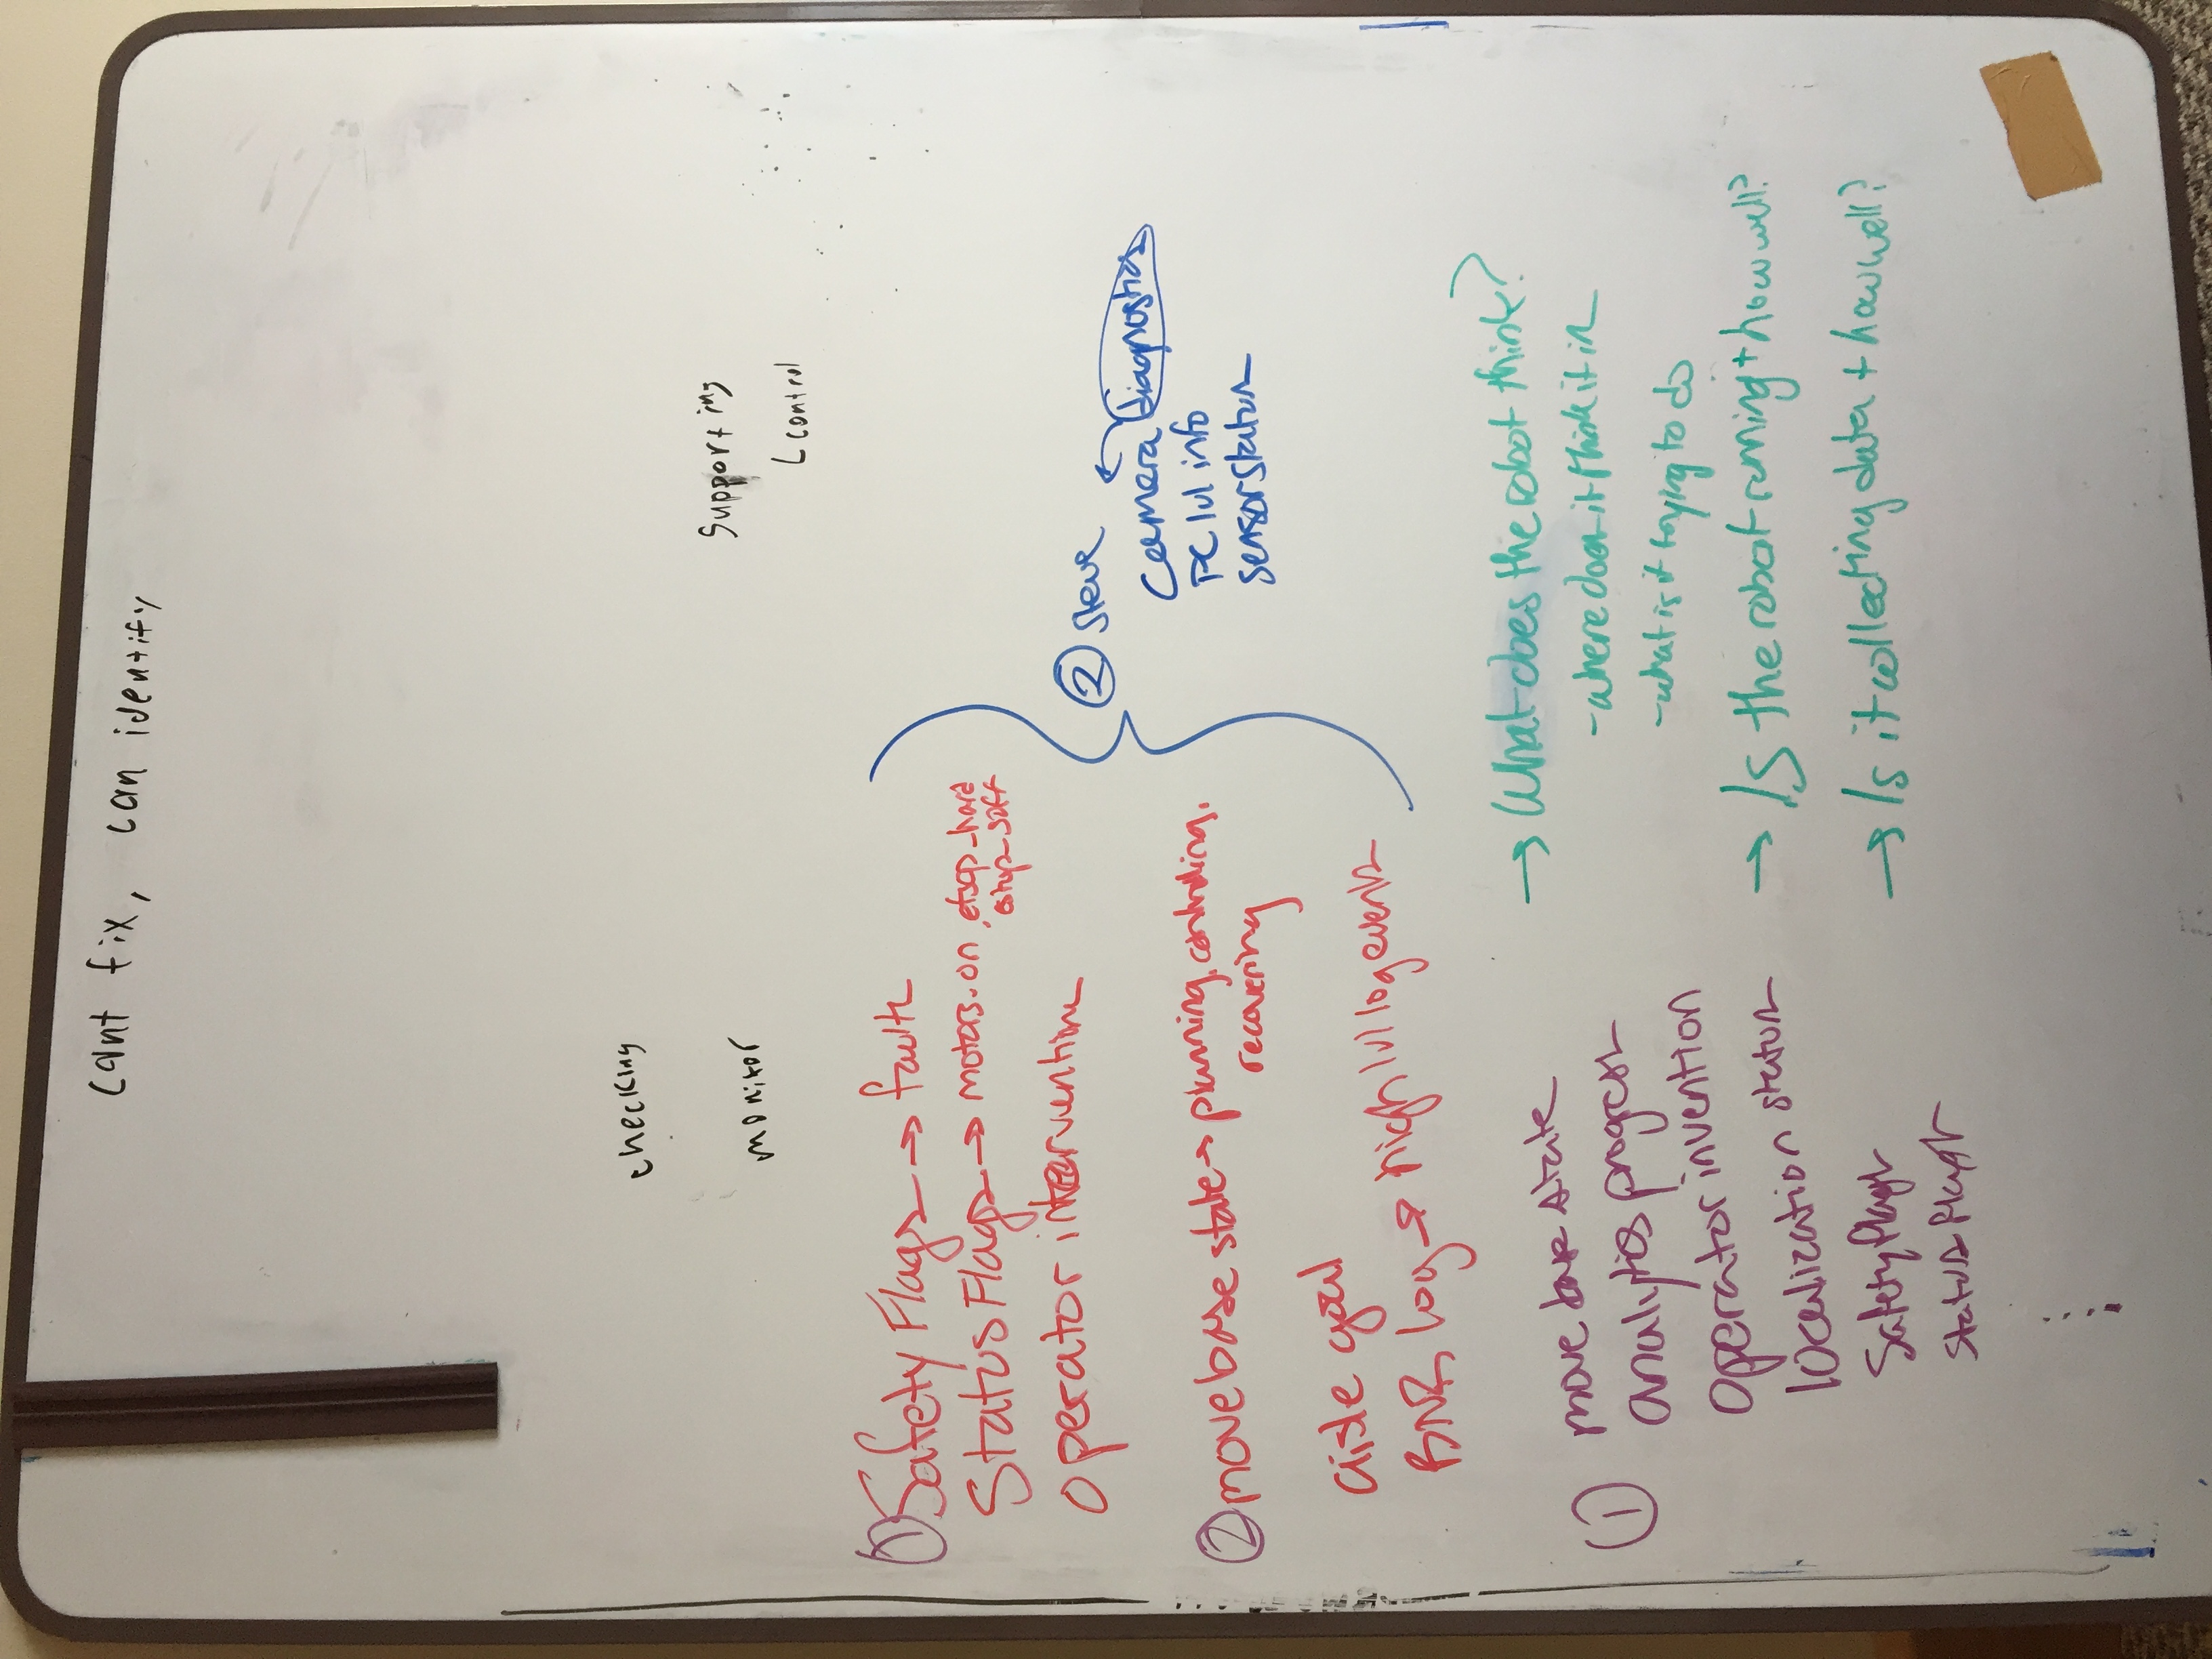 cant fix, can identify
checking
monitor
Supporting
L control
① Safety Flags → faults
Status Flags → motors-on, etsop_hard
estop_soft
operator intervention
② move base state → planning, controlling,
recovering
aisle goal
BNR log → high lvl log events
② steve
camera diagnostics
PC lvl info
sensor status
① move base state
analytics progress
operator invention
localization status
Safety flags
status flags
→ What does the robot think?
- where does it think it is
- what is it trying to do
→ Is the robot running + how well?
→ Is it collecting data + how well?